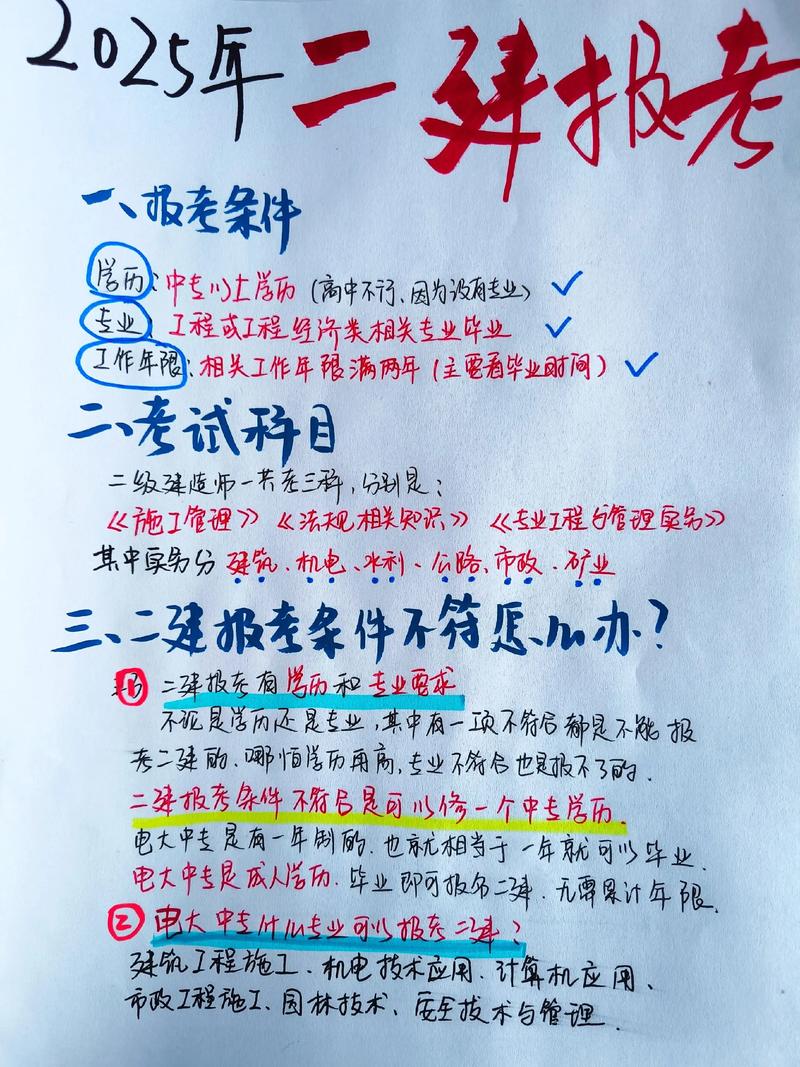 2025年 二建报考
一、报考条件
学历：中专以上学历（高中不行、因为没有专业）✓
专业、工程或工程经济类相关专业毕业 ✓
工作年限：相关工作年限满两年（主要看毕业时间）✓
二、考试科目
二级建造师一共考三科，分别是：
《施工管理》《法规相关知识》《专业工程与管理实务》
其中实务分 建筑、机电、水利、公路、市政、矿业
三、二建报考条件不符怎么办？
① 二建报考有学历和专业要求
不论是学历还是专业，其中有一项不符合都是不能报
考二建的、哪怕学历再高，专业不符合也是报不了的.
二建报考条件不符合是可以修一个中专学历.
电大中专是有一年制的.也就相当于一年就可以毕业.
电大中专是成人学历.毕业即可报名二建.无需累计年限.
② 电大中专什么专业可以报考二建？
建筑工程施工、机电技术应用、计算机应用、
市政工程施工、园林技术、安全技术与管理.